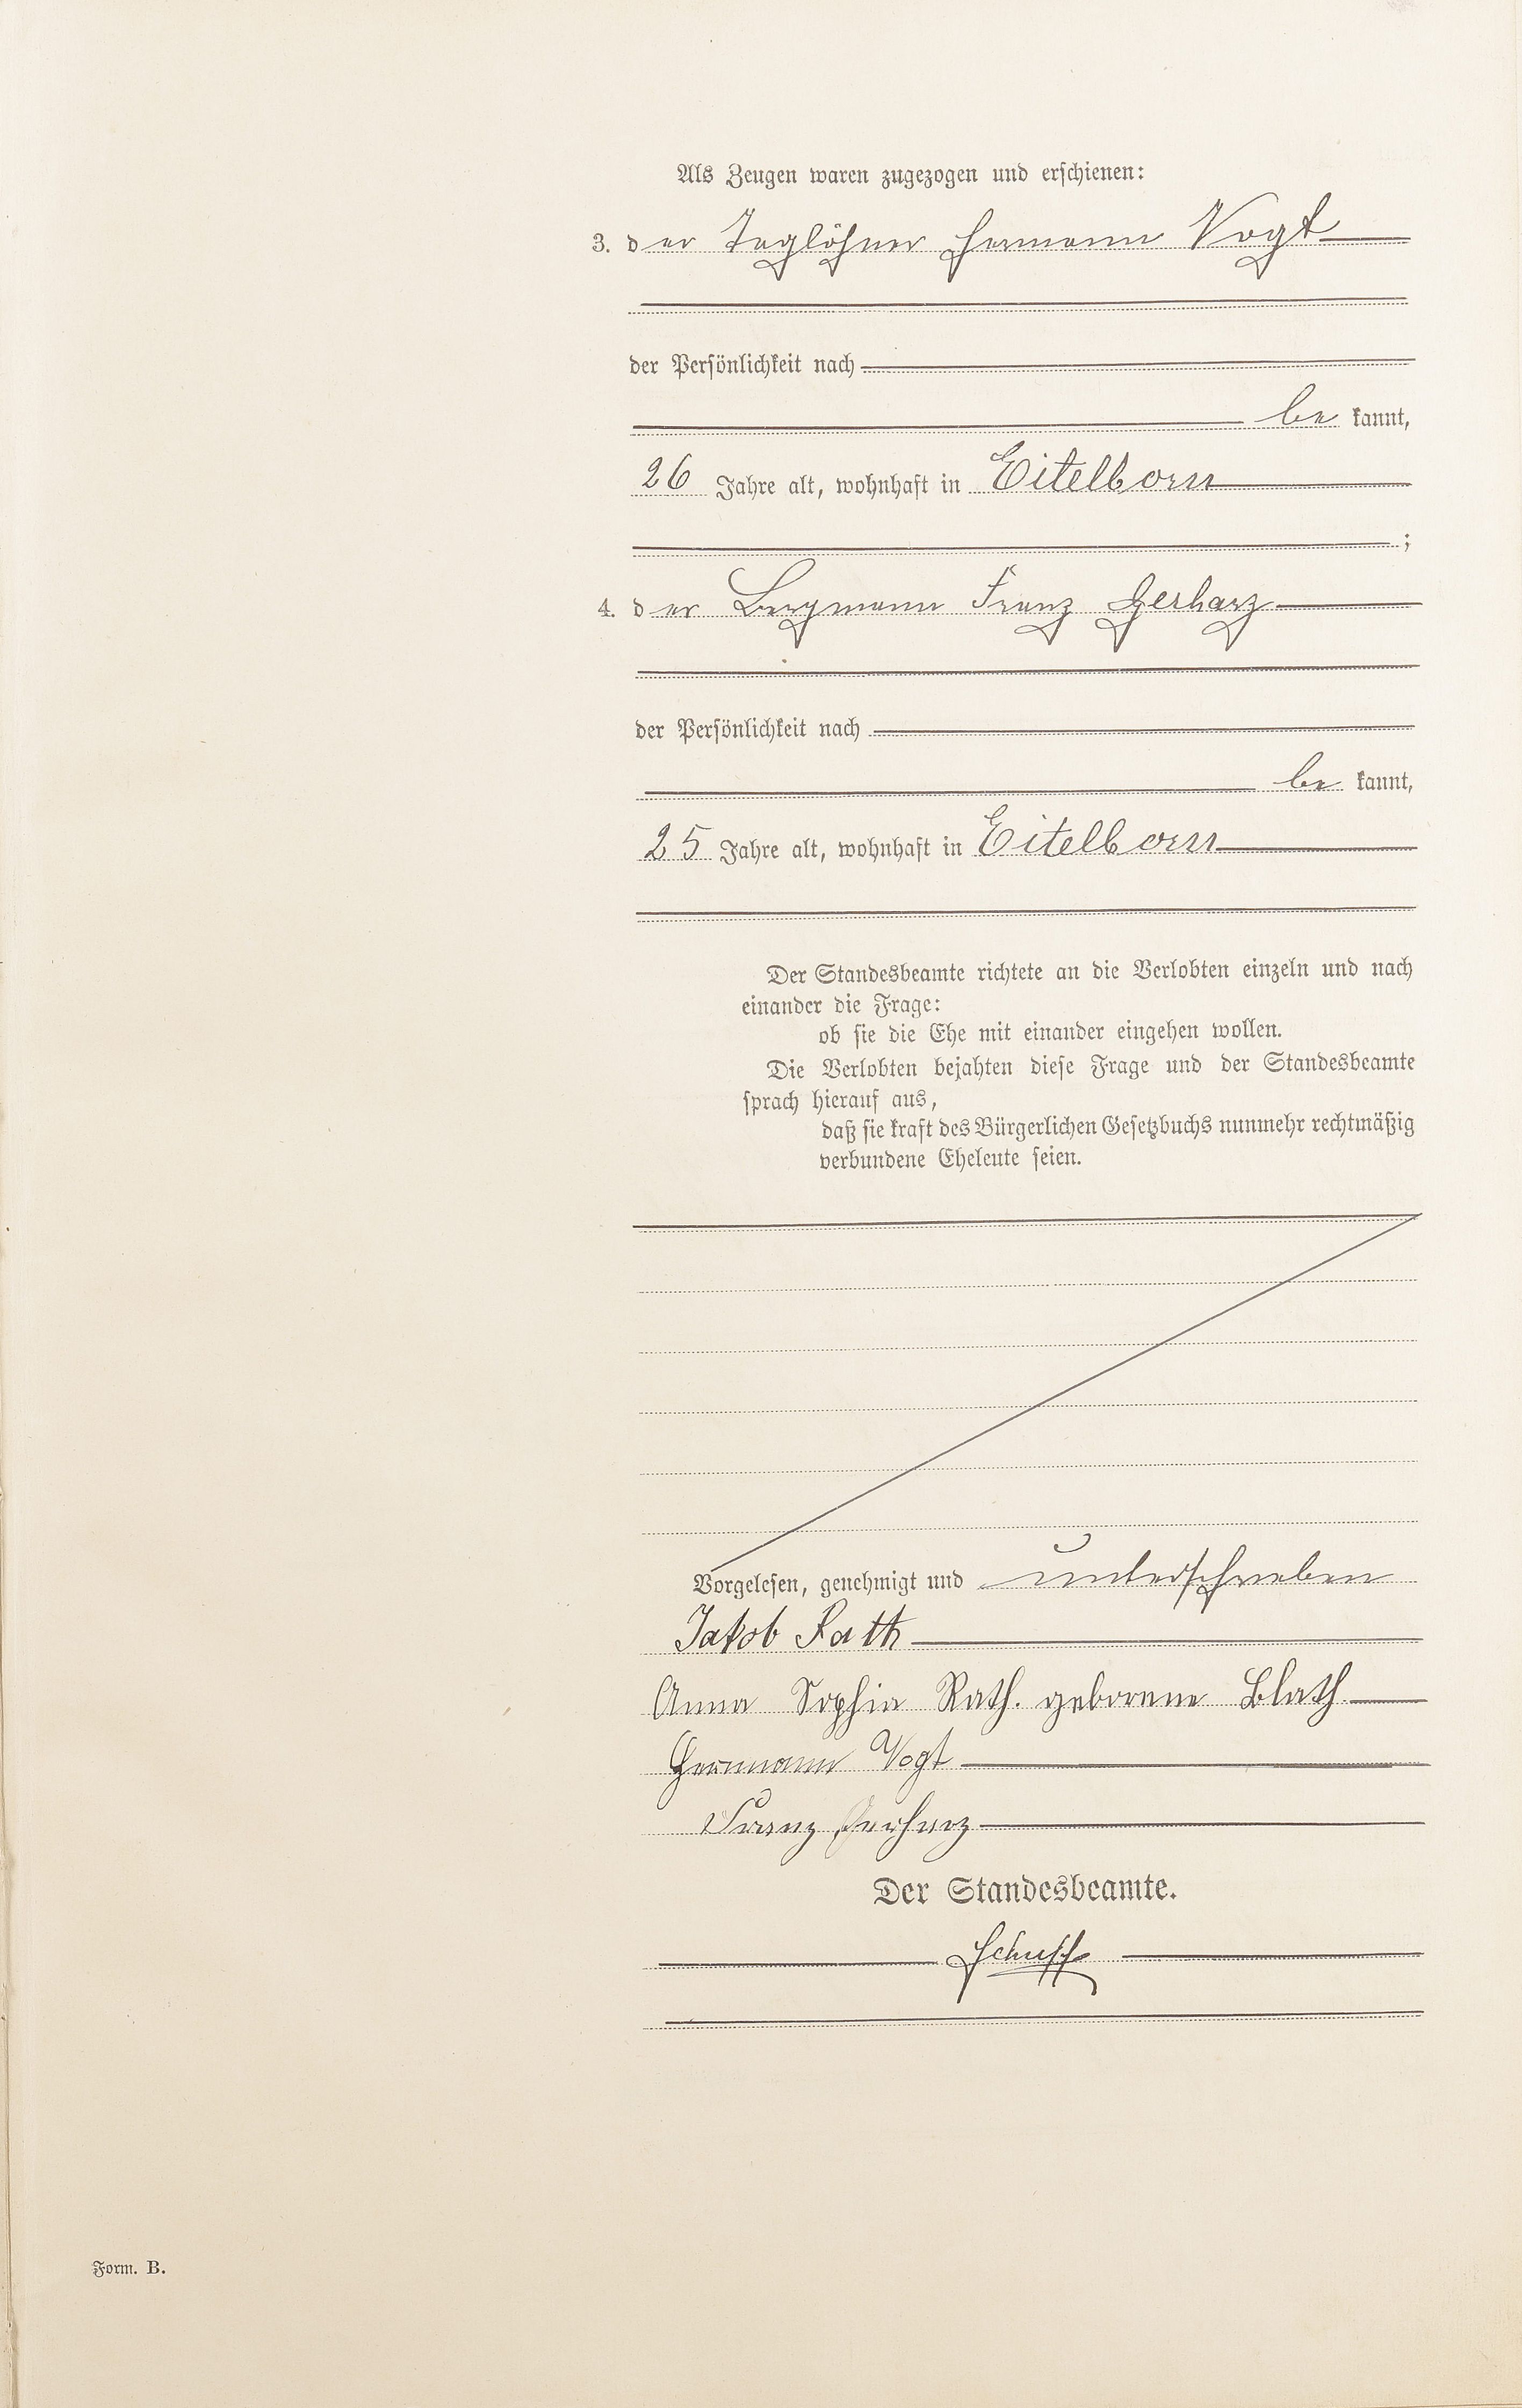 Als Zeugen waren zugezogen und erschienen:
3. der Taglöhner Hermann Vogt
der Persönlichkeit nach
be kannt,
26 Jahre alt, wohnhaft in Eitelborn
;
4. der Bergmann Franz Gerharz
der Persönlichkeit nach
be kannt,
25 Jahre alt, wohnhaft in Eitelborn
Der Standesbeamte richtete an die Verlobten einzeln und nach
einander die Frage:
ob sie die Ehe mit einander eingehen wollen.
Die Verlobten bejahten diese Frage und der Standesbeamte
sprach hierauf aus,
daß sie kraft des Bürgerlichen Gesetzbuchs nunmehr rechtmäßig
verbundene Eheleute seien.
Vorgelesen, genehmigt und unterschrieben
Jakob Rath
Anna Sophia Rath. geborene Blath
Hermann Vogt
Franz Gerharz
Der Standesbeamte.
Schuff
Form. B.